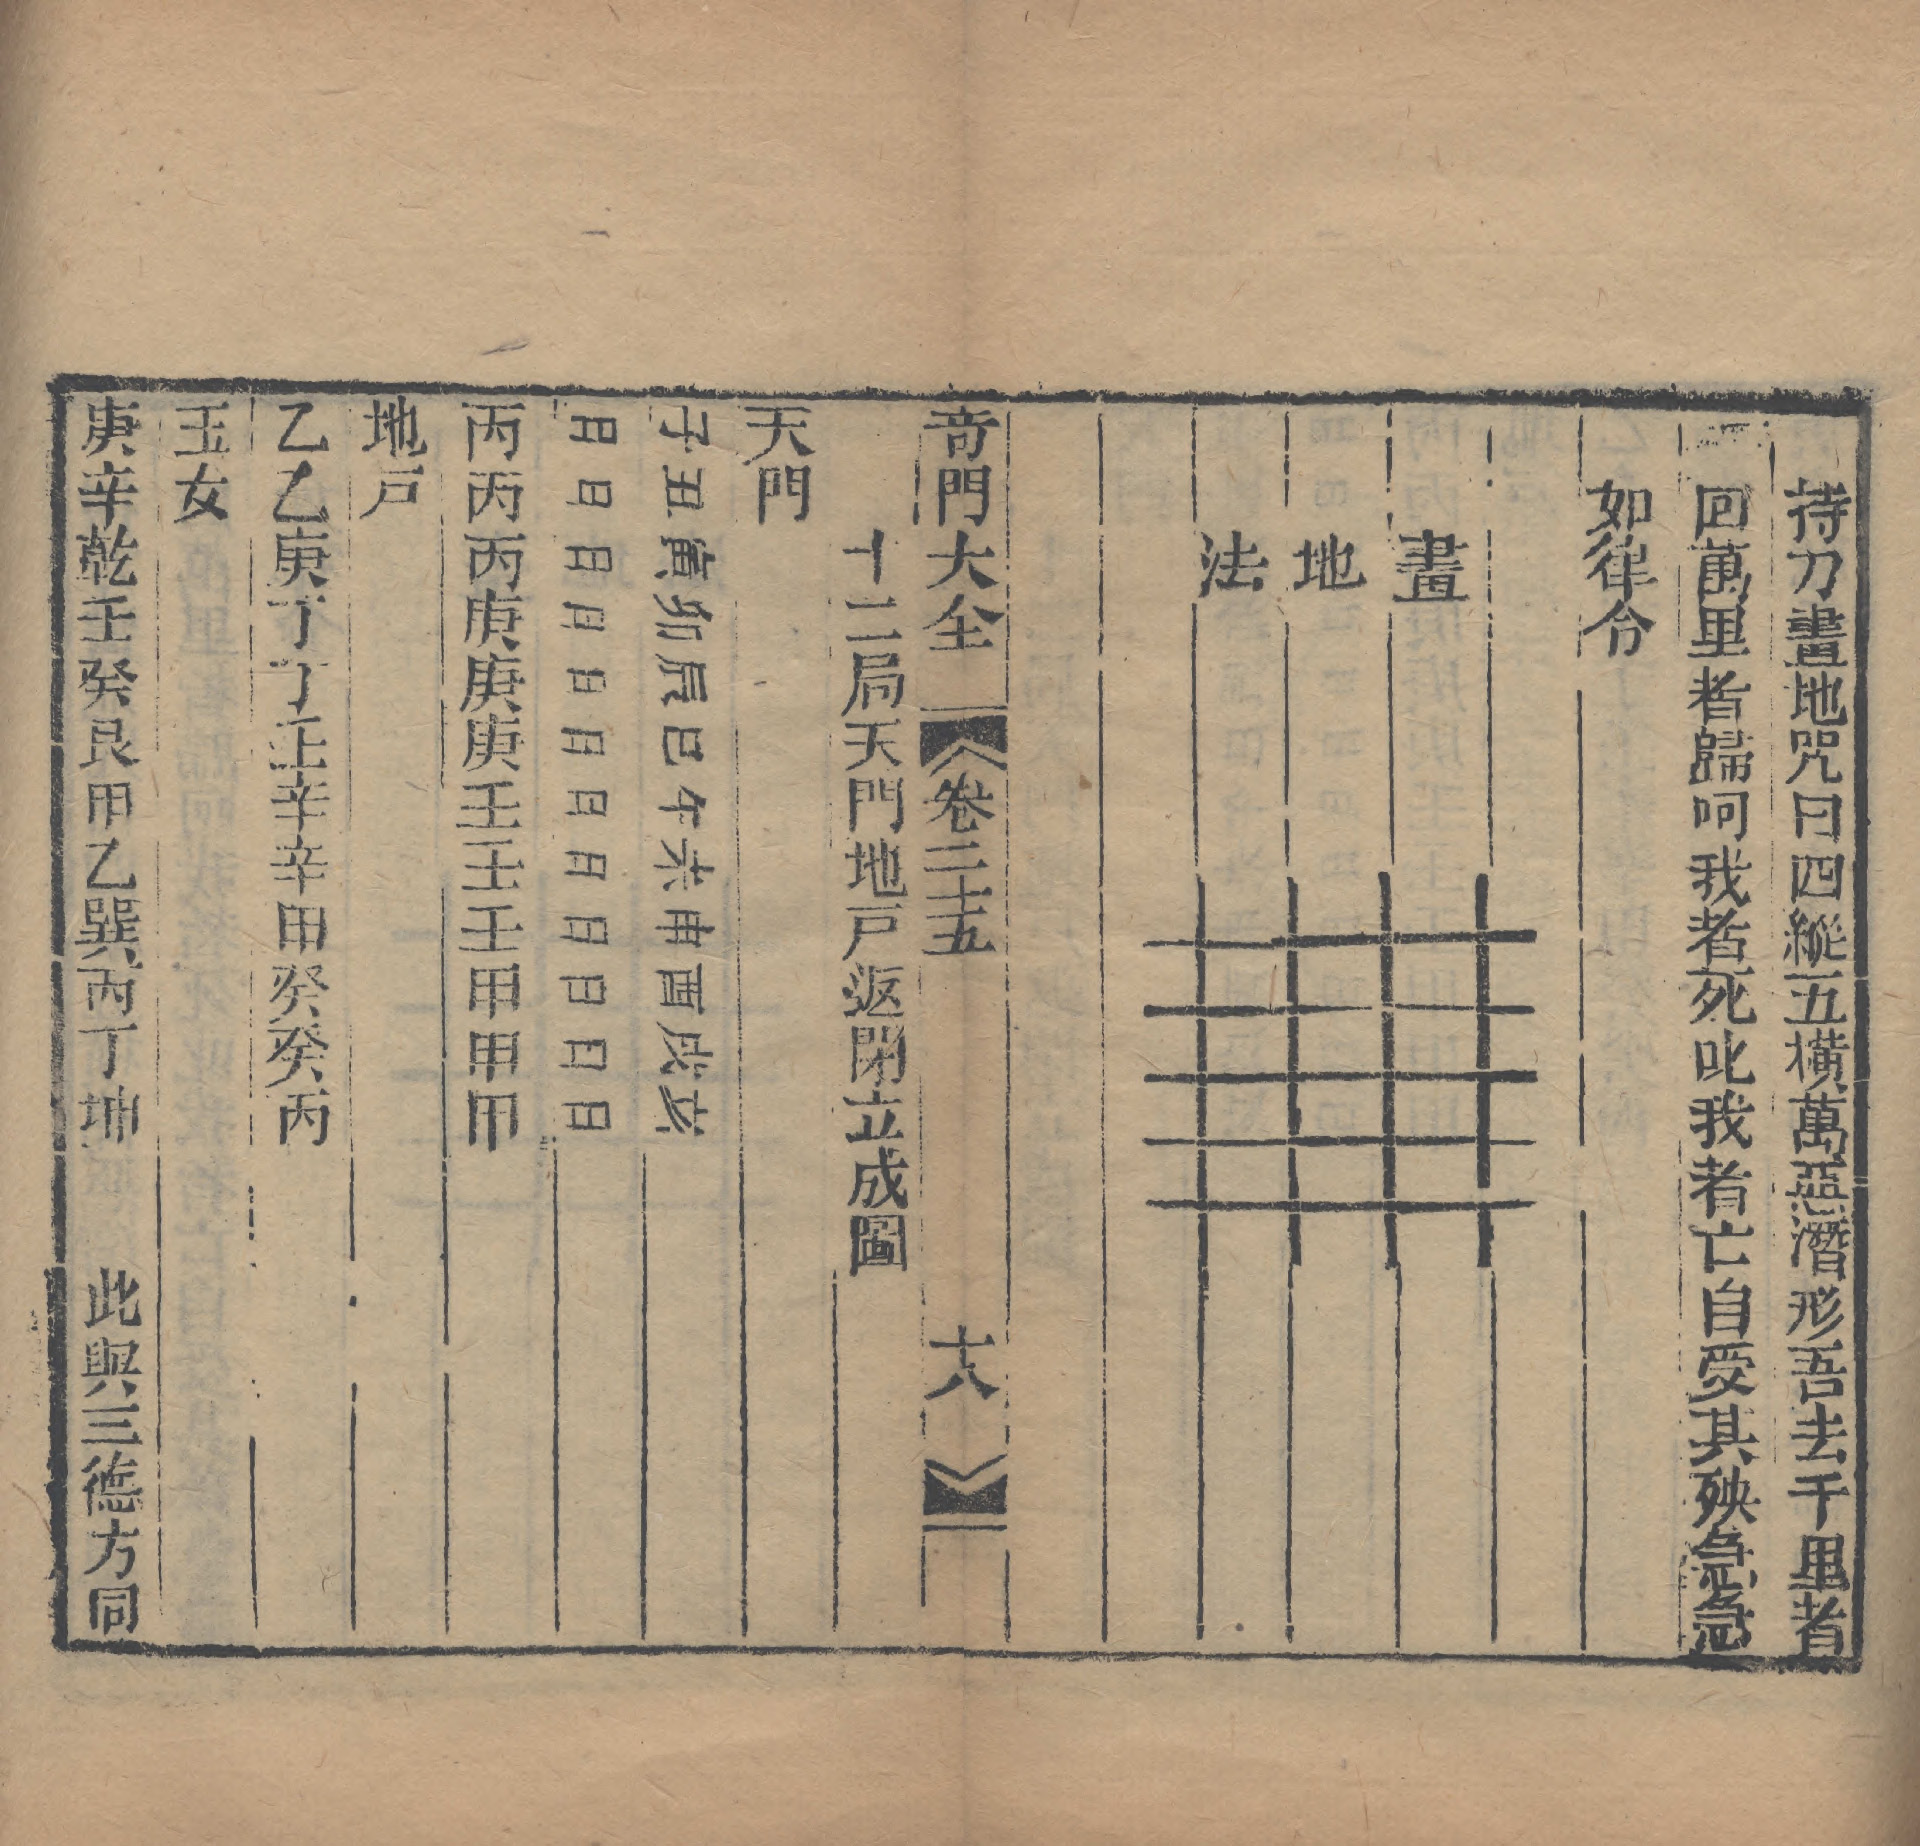 持刀畫地咒曰四縱五橫萬惡潛形吾去千里者
回萬里者歸呵我者死叱我者亡自受其殃急急
如律令
畫
地
法
奇門大全
卷二十五
十八
十二局天門地戸返閉立成圖
天門
子丑寅卯辰巳午未申酉戌亥
日日日日日日日日日日日日
丙丙丙庚庚庚壬壬壬甲甲甲
地戸
乙乙庚丁丁壬辛辛甲癸癸丙
玉女
庚辛乾壬癸艮甲乙巽丙丁坤 此與三德方同